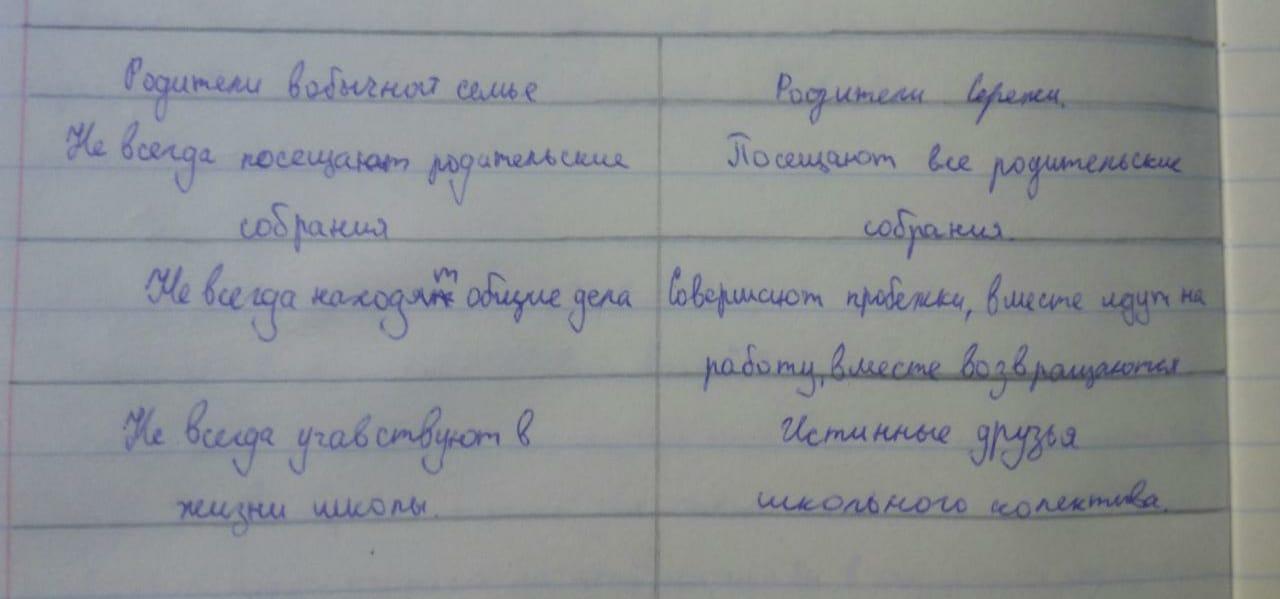 Родители в обычной семье
Родители Сережи.
Не всегда посещают родительские
собрания
Посещают все родительские
собрания.
Не всегда находят общие дела
Совершают пробежки, вместе идут на
работу, вместе возвращаются
Не всегда учавствуют в
жизни школы.
Истинные друзья
школьного колектива.